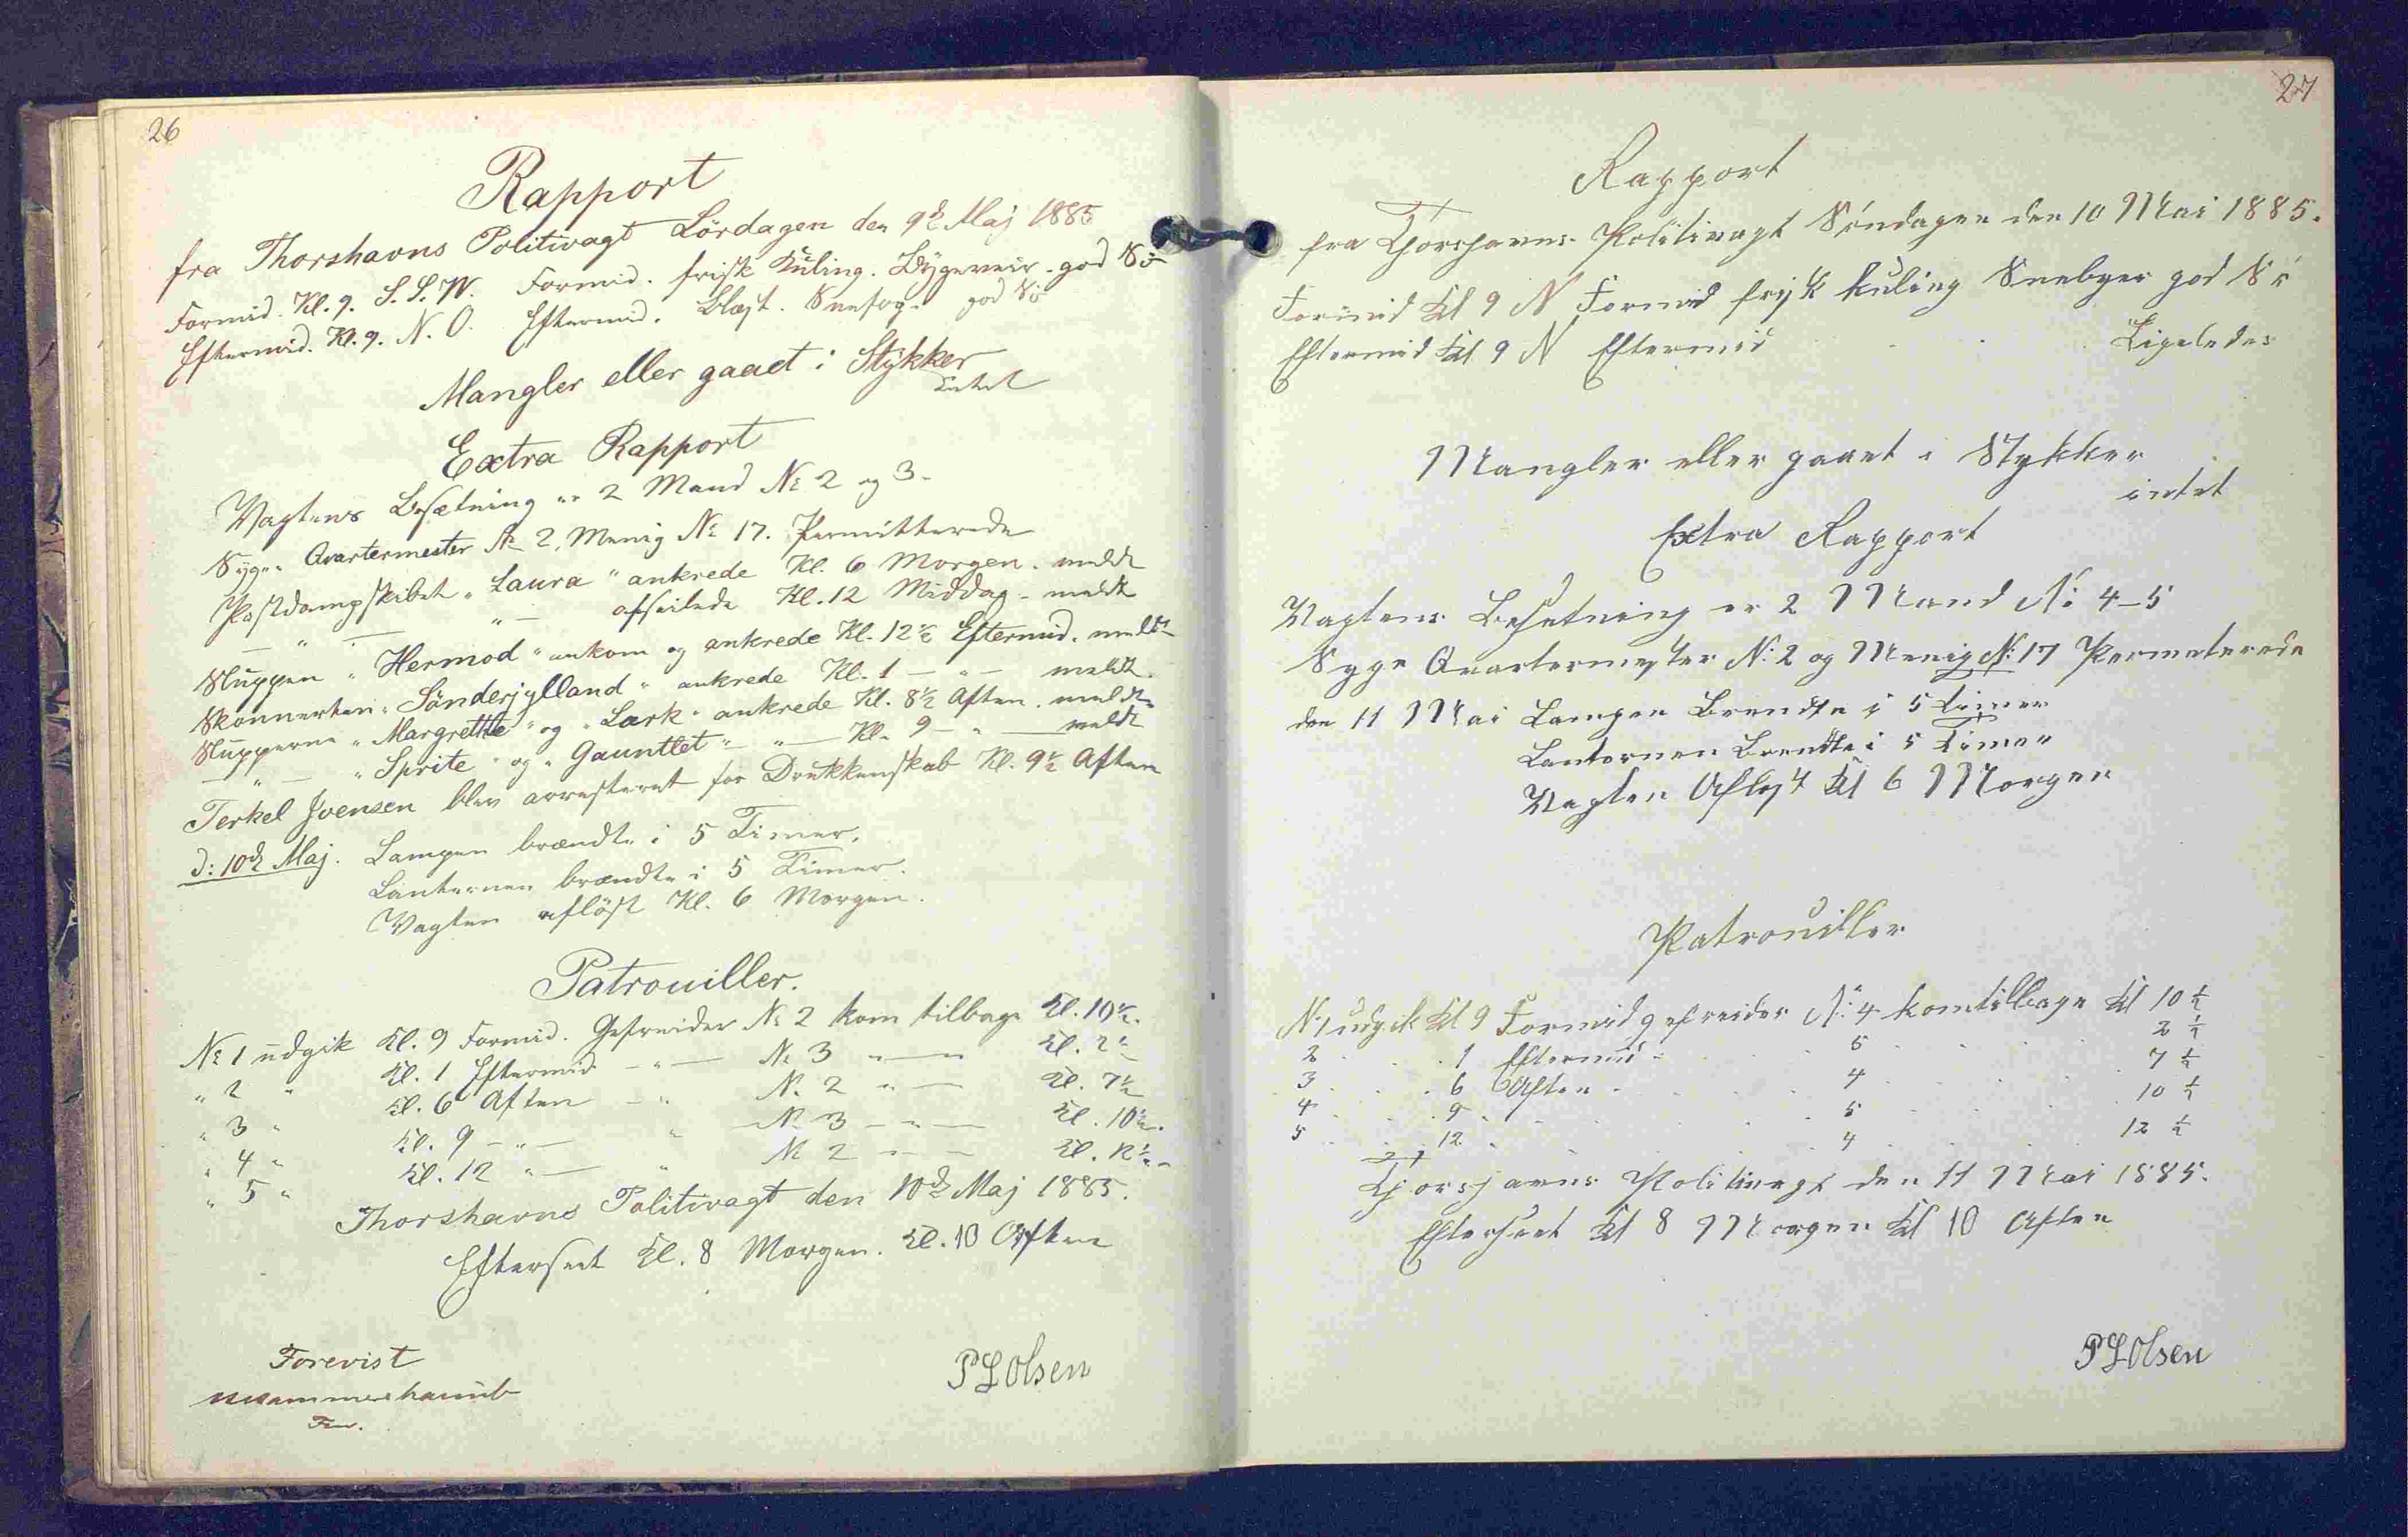 26
Rapport
fra Thorshavns Politivagt Lördagen den 9de Maj 1885
Formid. Kl. 9. S. S. W. Formid. frisk Kuling. Bygeveir. god Sö
Eftermid. Kl. 9. N. O. Eftermid. Blæst. Sneefog. god Sö
Mangler eller gaaet i Stykker
Intet
Extra Rapport
Vagtens Besætning er 2 Mand No 2 og 3.
Syge. Qvartermester No 2, Menig No 17. Permitterede
Postdampskibet „Laura" ankrede Kl. 6 Morgen. meldt
— " — " — afseilede Kl. 12 Middag - meldt
Sluppen „Hermod" ankom og ankrede Kl. 12½ Eftermid. meldt
Skonnerten „Sönderjylland" ankrede Kl. 1 — " — meldt.
Slupperne „Margrethe" og „Lark" ankrede Kl. 8½ Aften. meldt
— " — „Sprite" og „Gauntlet" — " — Kl. 9 — " — meldt
Terkel Joensen blev arresteret for Drukkenskab Kl. 9½ Aften
d: 10de Maj. Lampen brændte i 5 Timer.
Lanternen brændte i 5 Timer.
Vagten aflöst Kl. 6 Morgen.
Patrouiller.
No 1 udgik Kl. 9 Formid. Gefreider No 2 kom tilbage Kl. 10½.
„ 2 " Kl. 1 Eftermid — " — No 3 — " — Kl. 2½
„ 3 " Kl. 6 Aften — " No 2 — " — Kl. 7½
„ 4 " Kl. 9 — " — " No 3 — " — Kl. 10½.
„ 5 " Kl. 12 " — " No 2 — " — Kl. 12½.
Thorshavns Politivagt den 10de Maj 1885.
Efterseet Kl. 8 Morgen. Kl. 10 Aften
Forevist
PLOlsen
27
Rapport
fra Thorshavns Politivagt Söndagen den 10 Mai 1885.
Formid Kl 9 N Formid frisk kuling Sneebyer god Sö
Eftermid Kl 9 N Eftermid . . Ligeledes
Mangler eller gaaet i Stykker
intet
Extra Rapport
Vagtens Besetning er 2 Mand No 4-5
Syge Qvartermester No 2 og Menig No 17 Permeterede
den 11 Mai Lampen Brendte i 5 Timer
Lanternen Brendte i 5 Timer
Vagten Aflöst Kl 6 Morgen
Patrouiller
No 1 udgik Kl 9 Formid gefreider No 4 kom tilbage Kl 10½
2 . . 1 Eftermid . 5 . . 2½
3 . . 6 Aften . 4 . . 7½
4 . . 9 . . 5 . . 10½
5 . . 12 . . 4 . . 12½
Thorshavns Politivagt den 11 Mai 1885.
Efterseet Kl 8 Morgen Kl 10 Aften
PLOlsen